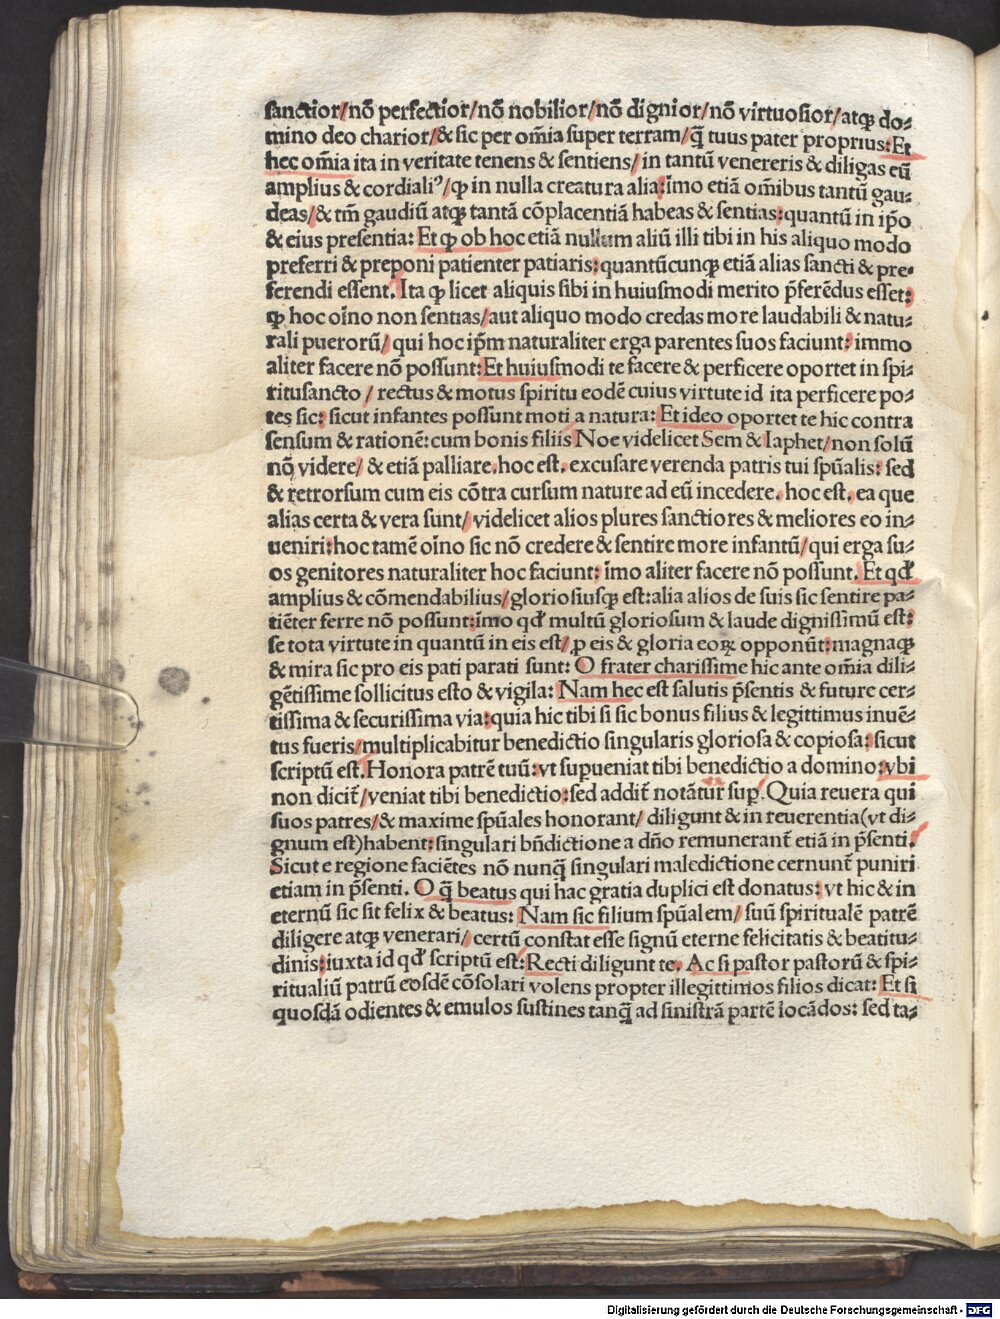 sanctior/nō perfectior/nō nobilior/nō dignior/nō virtuosior/atqȝ do⸗
mino deo charior/& sic per om̄ia super terram/q̄ tuus pater proprius:Et
hec om̄ia ita in veritate tenens & sentiens/in tantū venereris & diligas eū
amplius & cordiali⁹/ꝙ in nulla creatura alia:īmo etiā om̄ibus tantū gau⸗
deas/& tm̄ gaudiū atqȝ tantā cōplacentiā habeas & sentias:quantū in ip̄o
& eius presentia: Et ꝙ ob hoc etiā nullum aliū illi tibi in his aliquo modo
preferri & preponi patienter patiaris:quantūcunqȝ etiā alias sancti & pre⸗
ferendi essent. Ita ꝙ licet aliquis sibi in huiusmodi merito p̄ferēdus esset:
ꝙ hoc oīno non sentias/aut aliquo modo credas more laudabili & natu⸗
rali puerorū/ qui hoc ip̄m naturaliter erga parentes suos faciunt: immo
aliter facere nō possunt:Et huiusmodi te facere & perficere oportet in spi⸗
ritusancto / rectus & motus spiritu eodē cuius virtute id ita perficere po⸗
tes sic: sicut infantes possunt moti a natura: Et ideo oportet te hic contra
sensum & rationē:cum bonis filiis Noe videlicet Sem & Iaphet/non solū
nō videre/ & etiā palliare.hoc est. excusare verenda patris tui sp̄ualis: sed
& retrorsum cum eis cōtra cursum nature ad eū incedere. hoc est. ea que
alias certa & vera sunt/videlicet alios plures sanctiores & meliores eo in⸗
ueniri:hoc tamē oīno sic nō credere & sentire more infantū/qui erga su⸗
os genitores naturaliter hoc faciunt: īmo aliter facere nō possunt. Et qđ
amplius & cōmendabilius/gloriosiusqȝ est:alia alios de suis sic sentire pa⸗
tiēter ferre nō possunt:īmo qđ multū gloriosum & laude dignissimū est:
se tota virtute in quantū in eis est/ꝓ eis & gloria eoꝝ opponūt:magnaqȝ
& mira sic pro eis pati parati sunt: O frater charissime hic ante om̄ia dili⸗
gētissime sollicitus esto & vigila: Nam hec est salutis p̄sentis & future cer⸗
tissima & securissima via:quia hic tibi si sic bonus filius & legittimus inuē⸗
tus fueris/multiplicabitur benedictio singularis gloriosa & copiosa:sicut
scriptū est.Honora patrē tuū:vt suꝑueniat tibi benedictio a domino:vbi
non dicit̄/veniat tibi benedictio:sed addit̄ notātur suꝑ.Quia reuera qui
suos patres/& maxime sp̄uales honorant/ diligunt & in reuerentia(vt di⸗
gnum est)habent:singulari bn̄dictione a dn̄o remunerant̄ etiā in p̄senti.
Sicut e regione faciētes nō nunq̄ singulari maledictione cernunt̄ puniri
etiam in p̄senti. O q̄ beatus qui hac gratia duplici est donatus: vt hic & in
eternū sic sit felix & beatus: Nam sic filium sp̄ualem/ suū spiritualē patrē
diligere atqȝ venerari/ certū constat esse signū eterne felicitatis & beatitu⸗
dinis:iuxta id qđ scriptū est:Recti diligunt te. Ac si pastor pastorū & spi⸗
ritualiū patrū eosdē cōsolari volens propter illegittimos filios dicat: Et si
quosdā odientes & emulos sustines tanq̄ ad sinistrā partē locādos: sed ta⸗
Digitalisierung gefördert durch die Deutsche Forschungsgemeinschaft - DFG